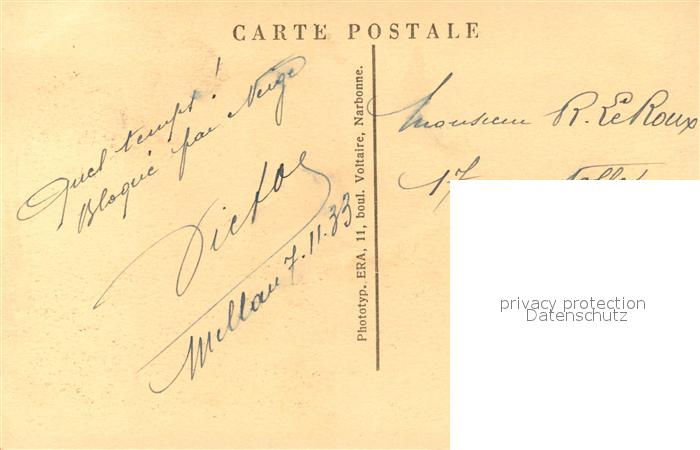 CARTE POSTALE
Quel temps !
Bloqué par Neige
Victor
Millau 7.11.33
Phototyp. ERA, 11, boul. Voltaire, Narbonne.
Monsieur R. Le Roux
17
privacy protection
Datenschutz